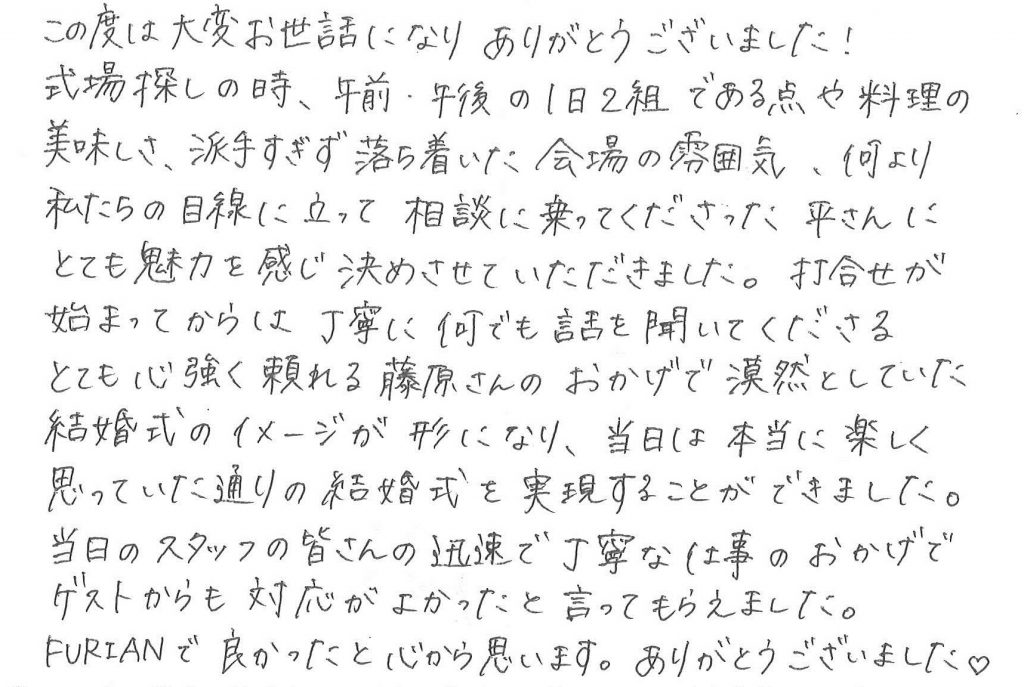 この度は大変お世話になり ありがとうございました!
式場探しの時、午前・午後の1日2組である点や料理の
美味しさ、派手すぎず落ち着いた会場の雰囲気、何より
私たちの目線に立って相談に乗ってくださった平さんに
とても魅力を感じ決めさせていただきました。打合せが
始まってからは丁寧に何でも話を聞いてくださる
とても心強く頼れる藤原さんのおかげで漠然としていた
結婚式のイメージが形になり、当日は本当に楽しく
思っていた通りの結婚式を実現することができました。
当日のスタッフの皆さんの迅速で丁寧な仕事のおかげで
ゲストからも対応がよかったと言ってもらえました。
FURIANで良かったと心から思います。ありがとうございました♡